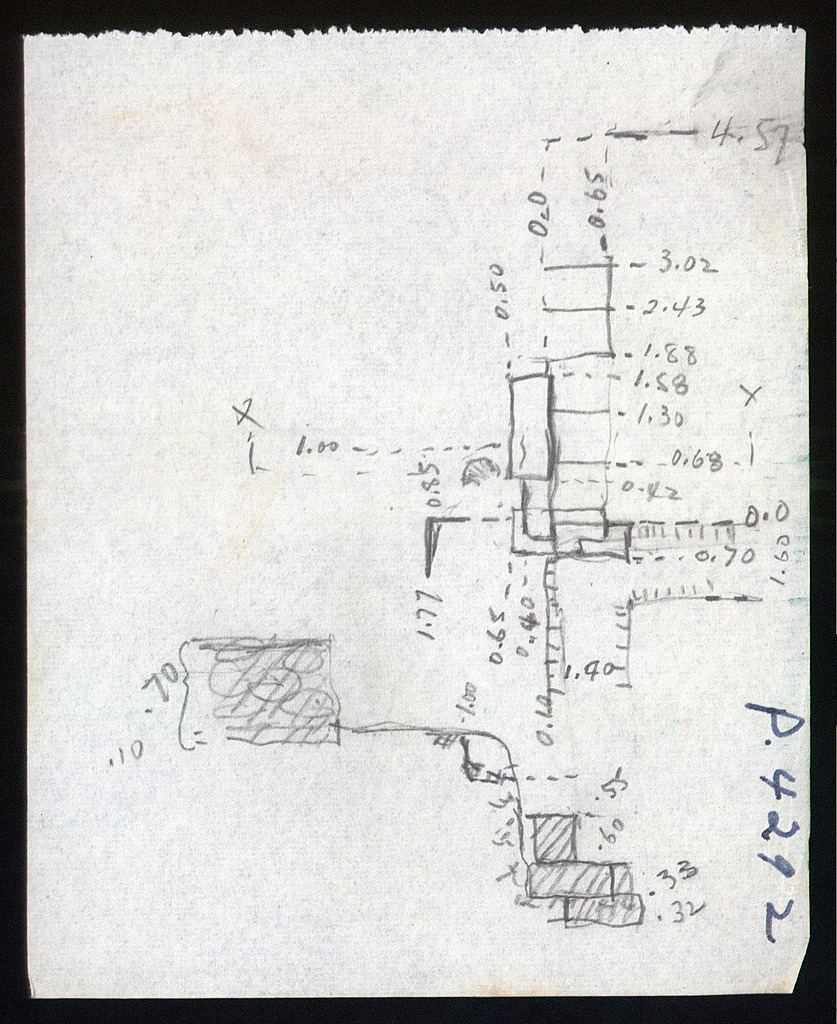 4.57
0.0
0.65
3.02
0.50
2.43
1.88
1.58
X
X
1.30
1.00
0.68
0.85
0.42
0.0
0.70
1.60
1.77
0.65
0.40
1.40
0.10
.70
.10
1.00
P. 4292
.55
.60
X
.33
.32